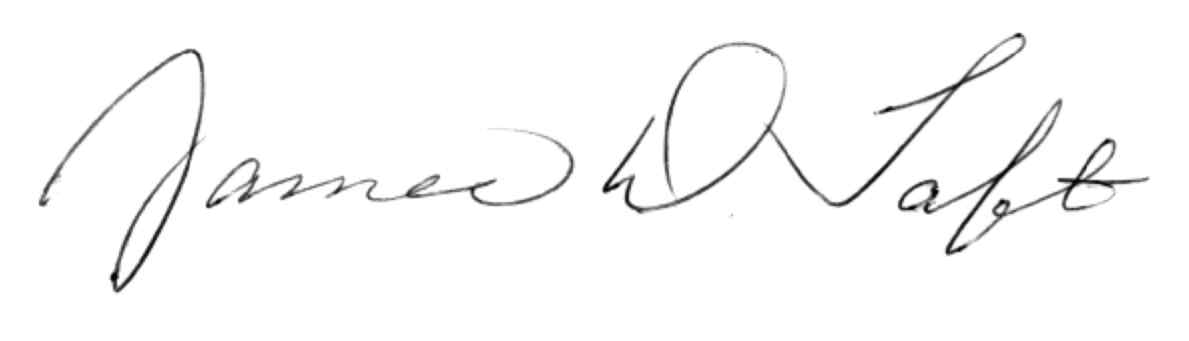 James D. Taft